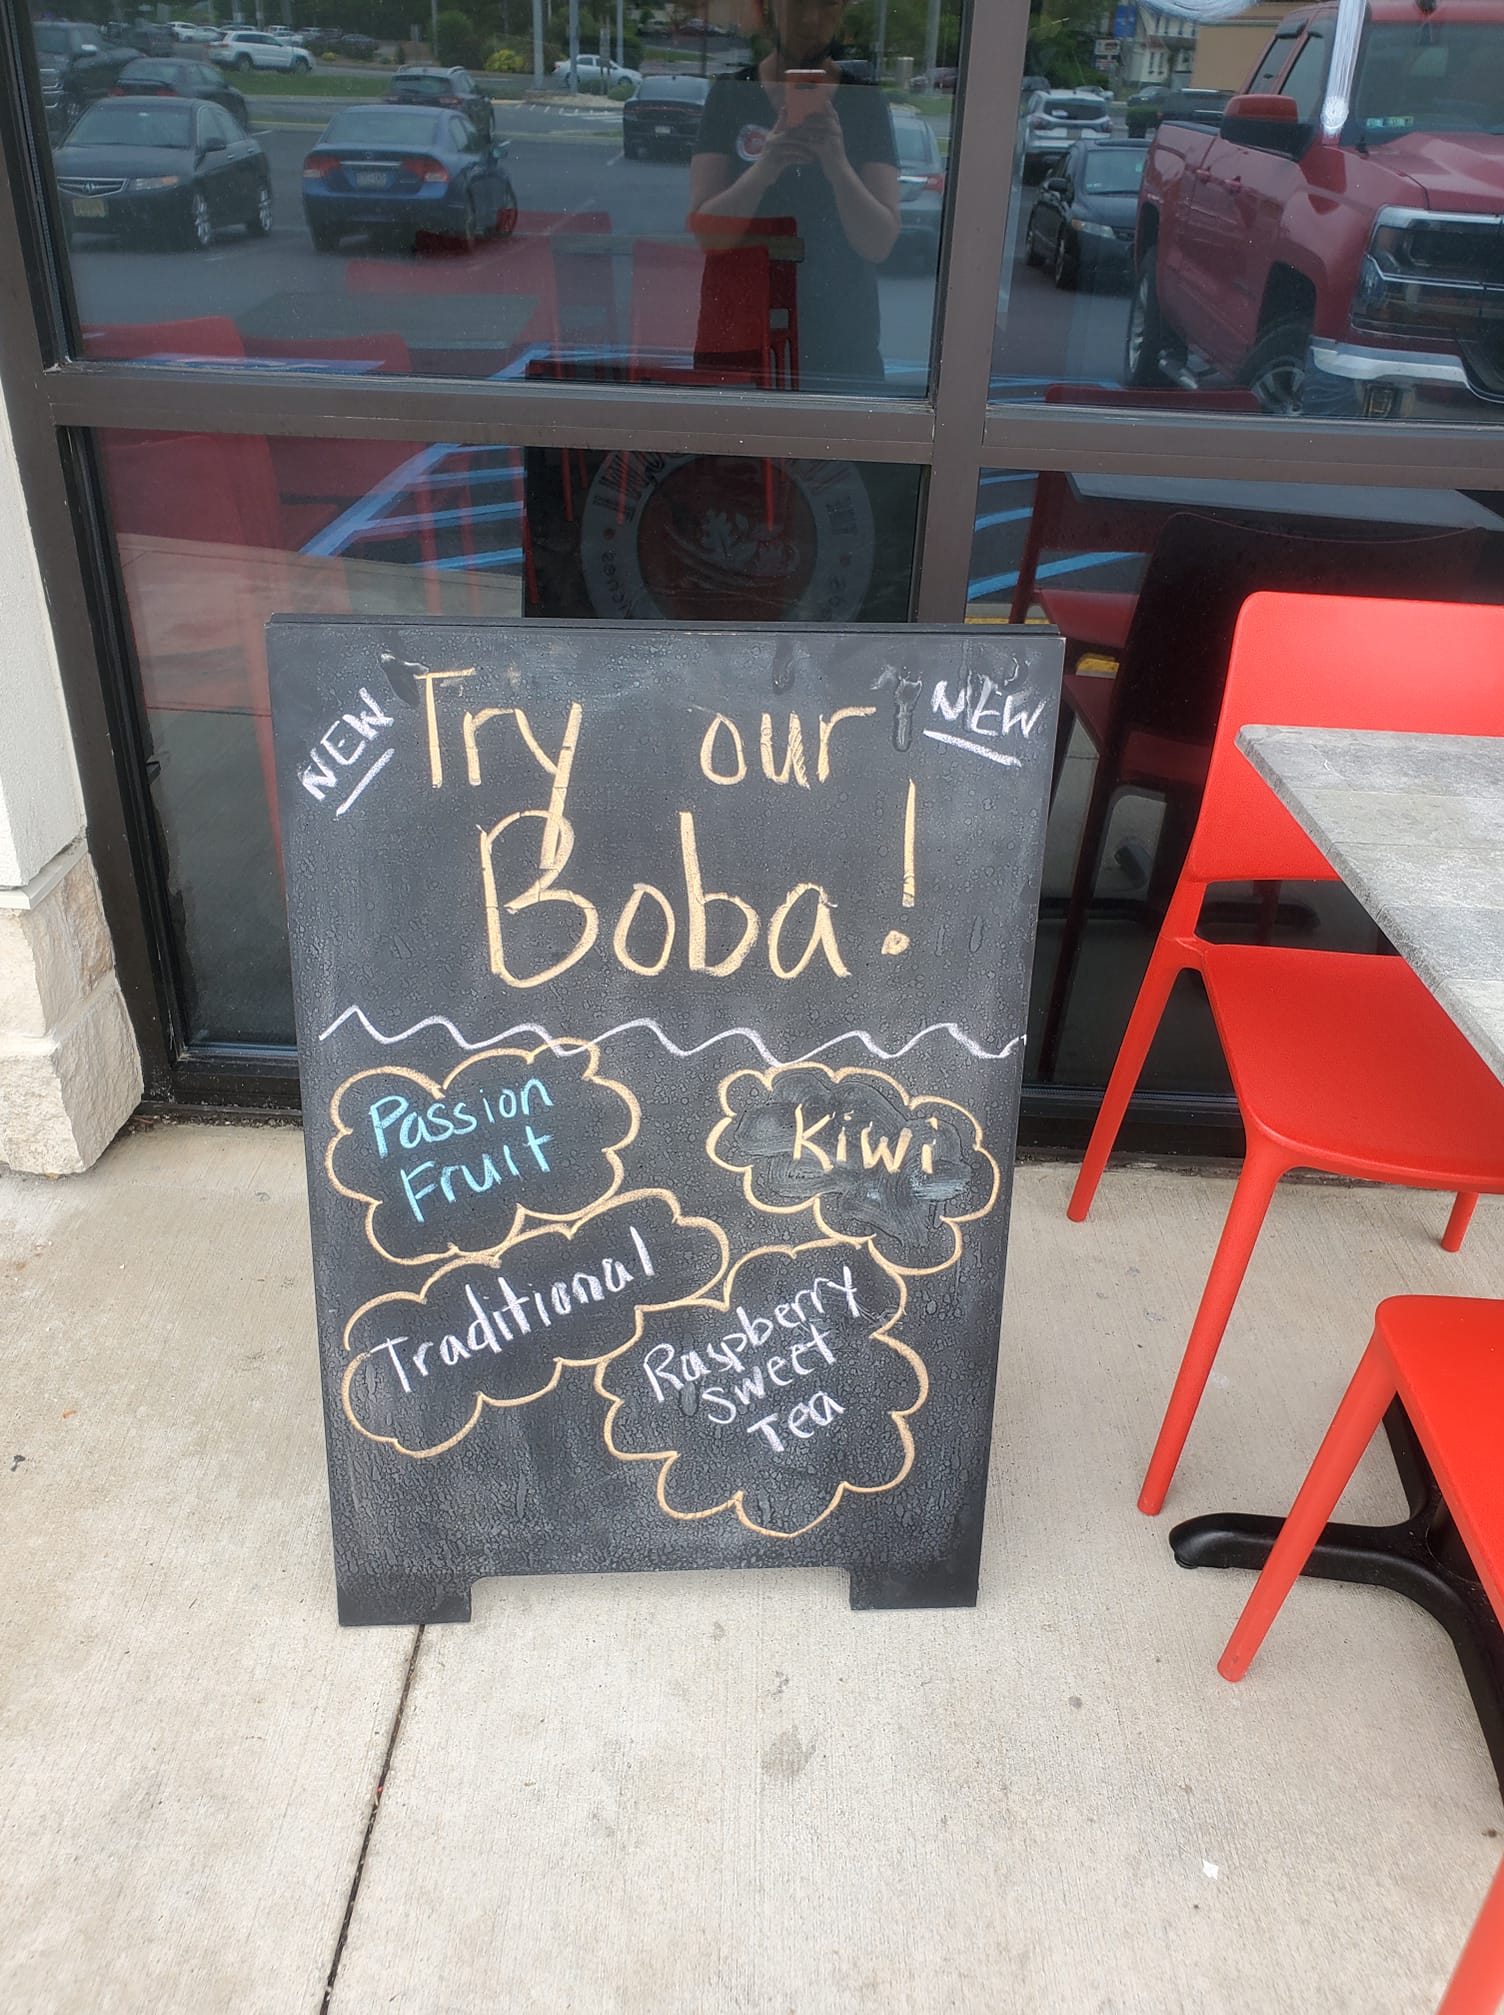 NEW Try our NEW
Boba!
Passion
Fruit
Kiwi
Traditional
Raspberry
Sweet
Tea